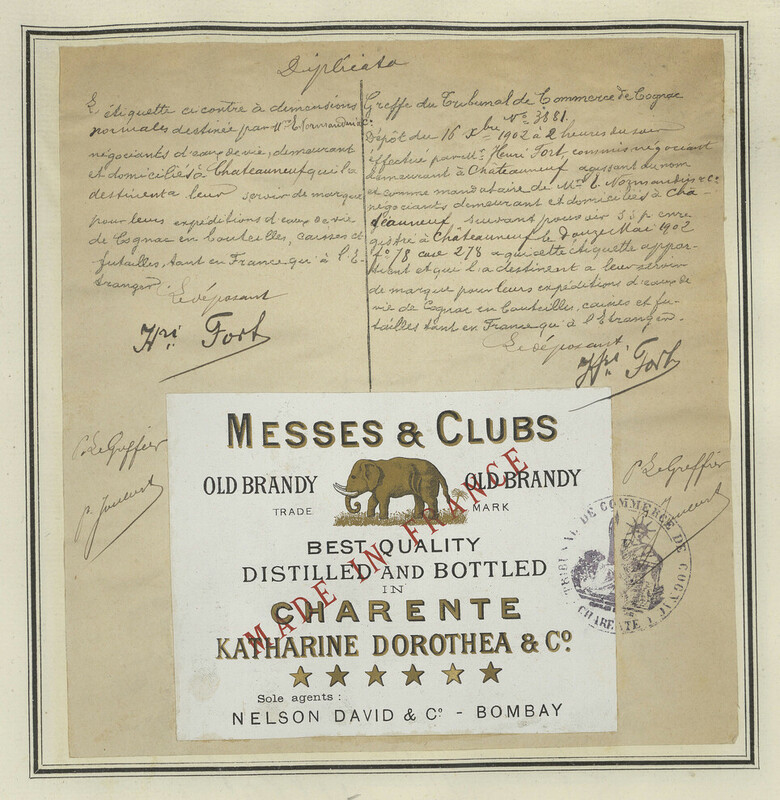 Duplicata
L'étiquette ci contre à dimensions
normales destinée par Mrs E. Normandin & Co
négociants d'eaux de vie, demeurant
et domiciliés à Chateauneuf qui la
destinent a leur servir de marque
pour leurs expéditions d'eaux de vie
de Cognac en bouteilles, caisses et
futailles, tant en France qu'à l'E-
tranger.
Le déposant
Hri Fort
Greffe du Tribunal de Commerce de Cognac
No 3881.
Dépôt du 16 Xbre 1902 à 2 heures du soir
effectué par Mr Henri Fort, commis négociant
demeurant à Châteauneuf agissant au nom
et comme mandataire de Mrs E. Normandin & Co
négociants demeurant et domiciliés à Châ-
teauneuf, suivant pouvoir s.s.p. enre-
gistré à Châteauneuf le douze Mai 1902
fo 78 case 278 à qui cette étiquette appar-
tient et qui la destinent a leur servir
de marque pour leurs expéditions d'eaux de
vie de Cognac en bouteilles, caisses et fu-
tailles tant en France qu'à l'Etranger.
Le déposant
Hri Fort
P. Le Greffier
P. Le Greffier
MESSES & CLUBS
OLD BRANDY OLD BRANDY
TRADE MARK
MADE IN FRANCE
BEST QUALITY
DISTILLED AND BOTTLED
IN
CHARENTE
KATHARINE DOROTHEA & Co.
Sole agents:
NELSON DAVID & Co - BOMBAY
TRIBUNAL DE COMMERCE DE COGNAC
CHARENTE